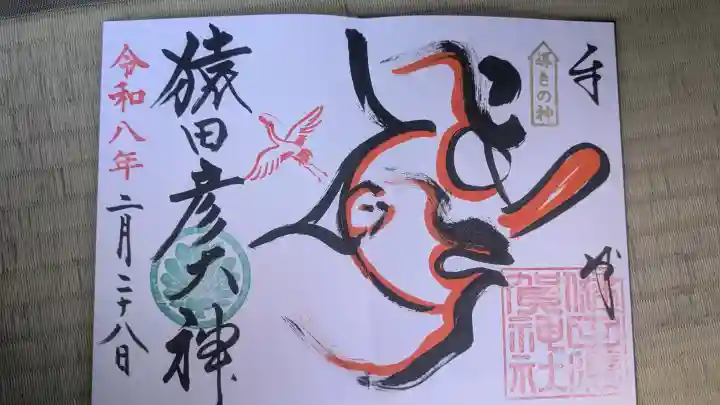 奉拝
導きの神
賀神社
猿田彦大神
令和八年
二月二十八日